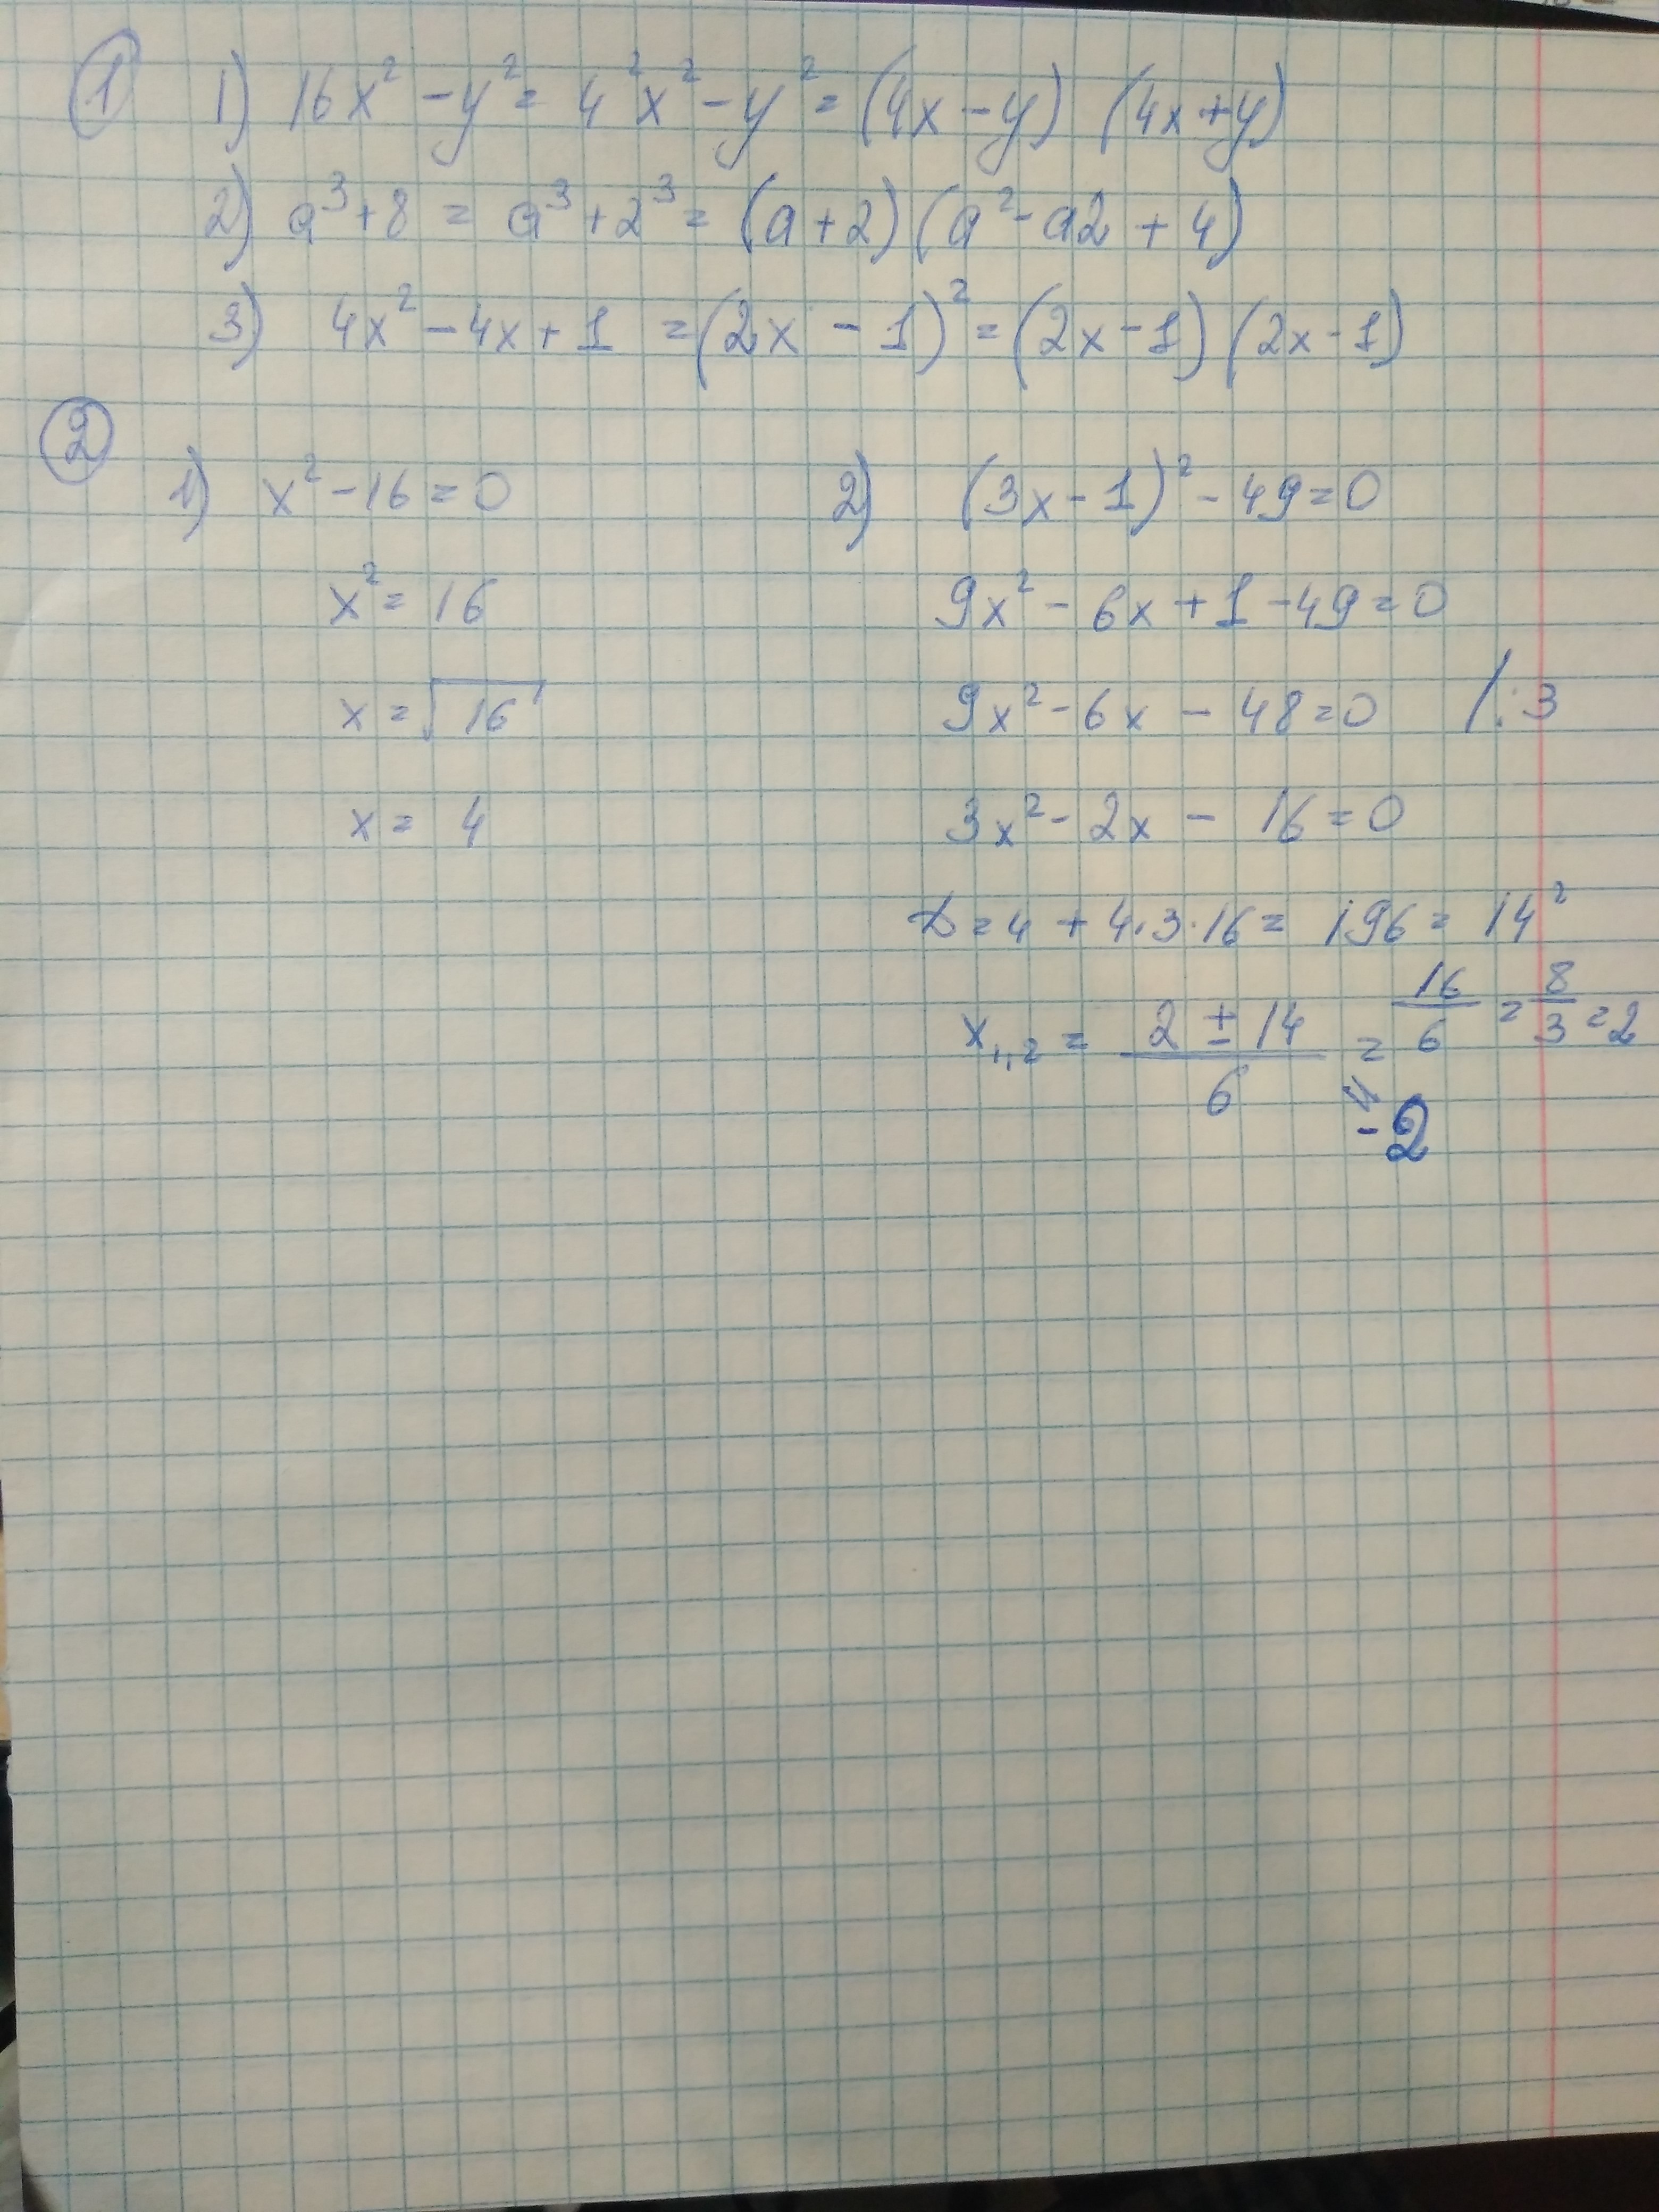 1 1) 16x² - y² = 4²x² - y² = (4x - y) (4x + y)
2) a³ + 8 = a³ + 2³ = (a + 2) (a² - a2 + 4)
3) 4x² - 4x + 1 = (2x - 1)² = (2x - 1) (2x - 1)
2
1) x² - 16 = 0
x² = 16
x = √16
x = 4
2) (3x - 1)² - 49 = 0
9x² - 6x + 1 - 49 = 0
9x² - 6x - 48 = 0 /:3
3x² - 2x - 16 = 0
D = 4 + 4·3·16 = 196 = 14²
x₁,₂ = (2 ± 14)/6 = 16/6 = 8/3 = 2
= -2